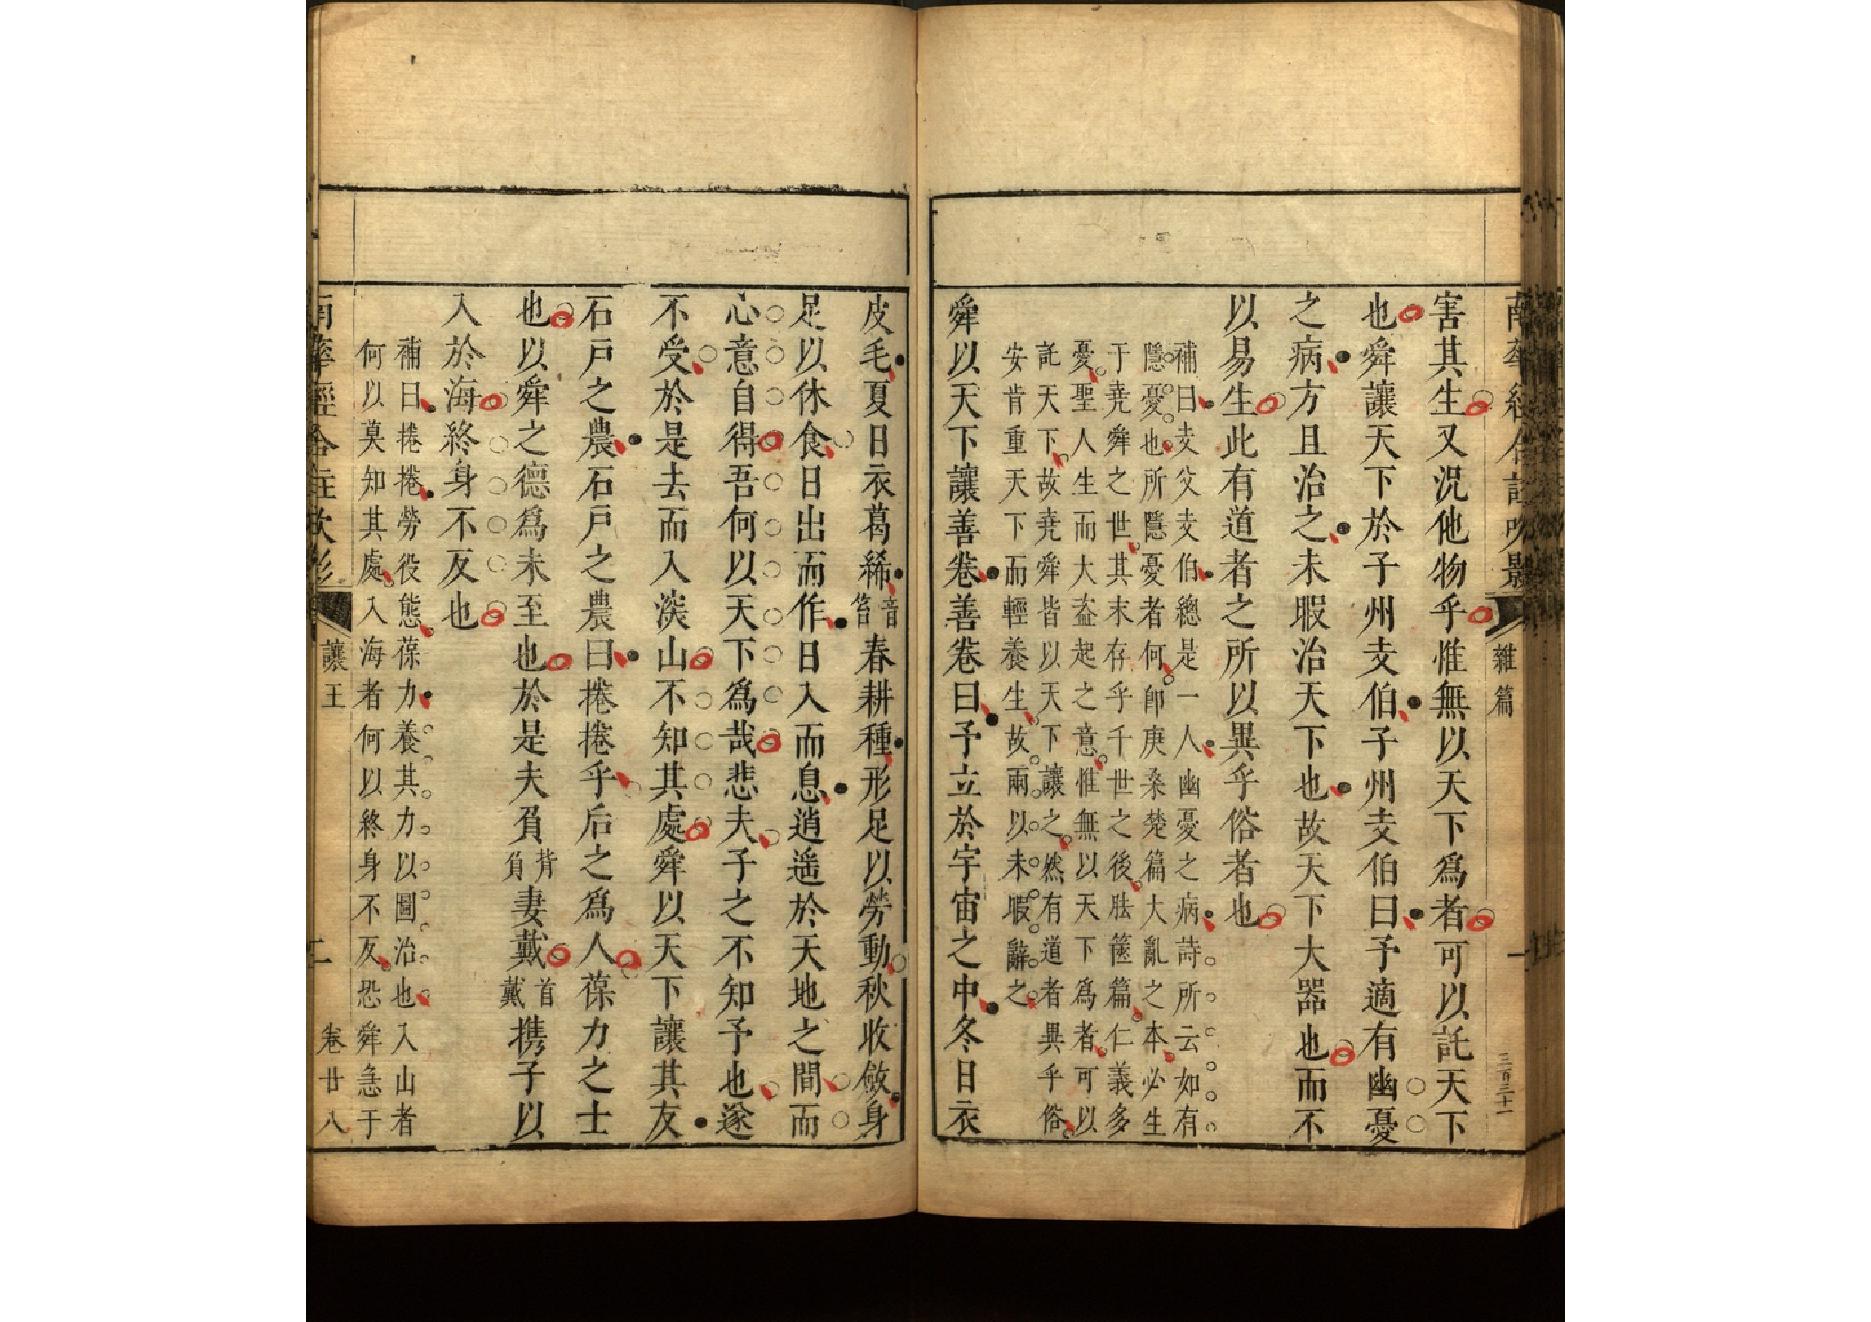 南華經合註吹影
雜篇
一
三百三十一
害其生又況他物乎惟無以天下爲者可以託天下
也舜讓天下於子州支伯子州支伯曰予適有幽憂
之病方且治之未暇治天下也故天下大器也而不
以易生此有道者之所以異乎俗者也
補曰支父支伯總是一人幽憂之病詩所云如有
隱憂也所隱憂者何卽庚桑楚篇大亂之本必生
于堯舜之世其末存乎千世之後胠篋篇仁義多
憂聖人生而大盗起之意惟無以天下爲者可以
託天下故堯舜皆以天下讓之然有道者異乎俗
安肯重天下而輕養生故兩以未暇辭之
舜以天下讓善卷善卷曰予立於宇宙之中冬日衣
皮毛夏日衣葛絺音笞春耕種形足以勞動秋收斂身
足以休食日出而作日入而息逍遥於天地之間而
心意自得吾何以天下爲哉悲夫子之不知予也遂
不受於是去而入深山不知其處舜以天下讓其友
石戸之農石戸之農曰捲捲乎后之爲人葆力之士
也以舜之德爲未至也於是夫負背負妻戴首戴携子以
入於海終身不反也
補曰捲捲勞役態葆力養其力以圖治也入山者
何以莫知其處入海者何以終身不反恐舜急于
南華經合註吹影
讓王
二
卷廿八